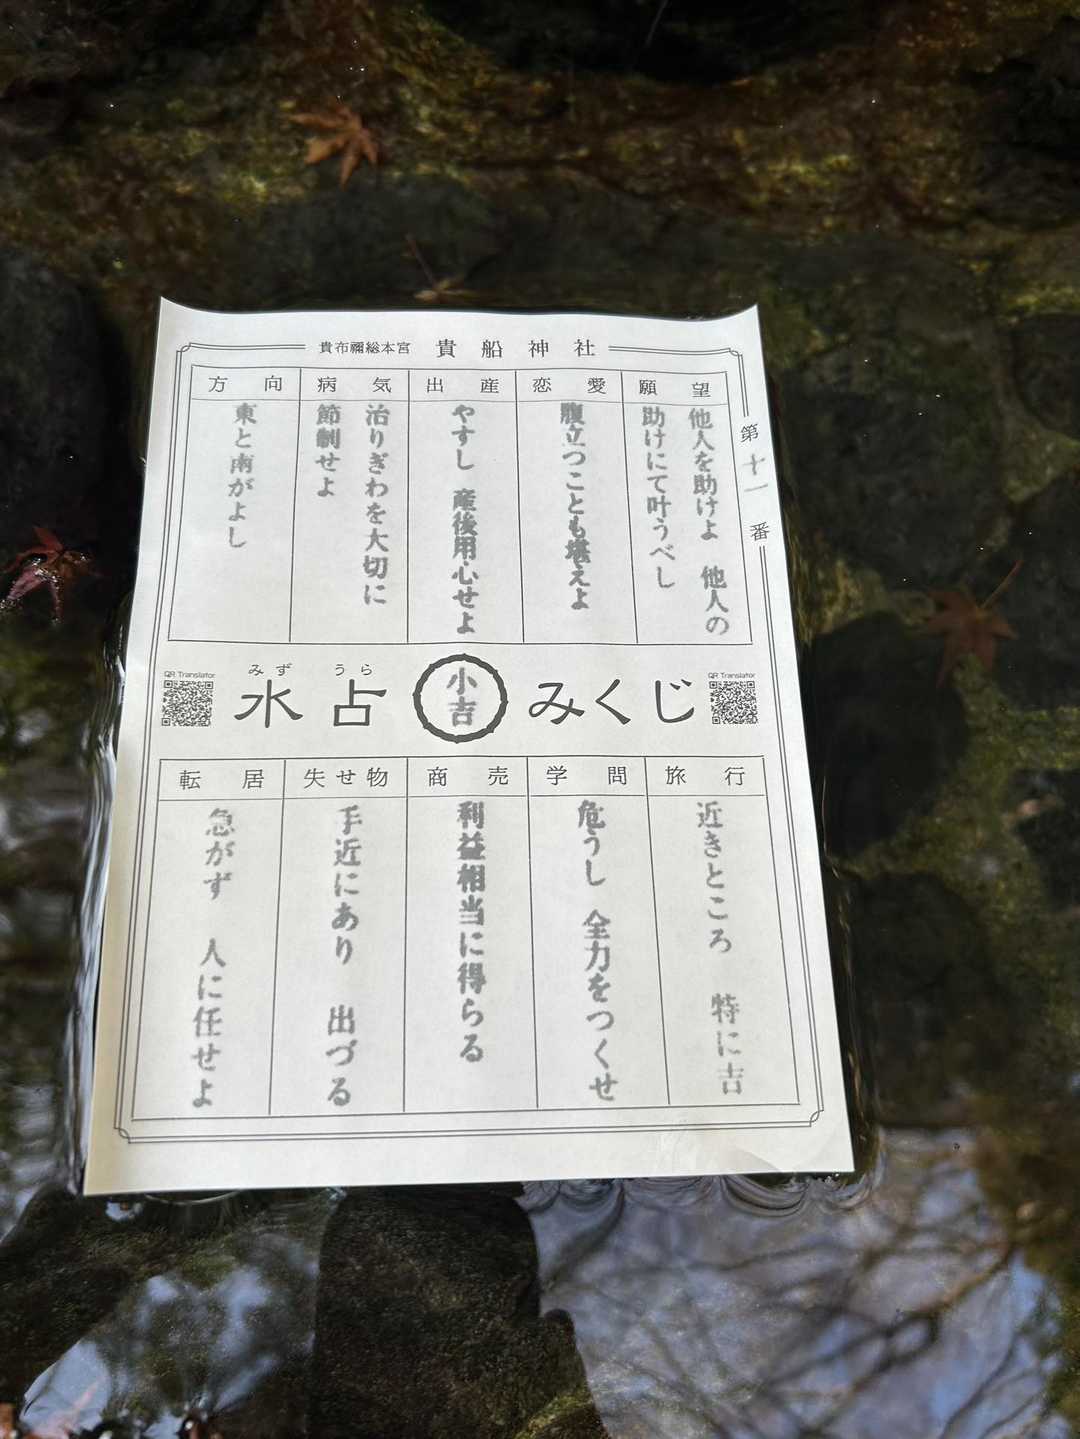 貴布禰総本宮 貴船神社
第十一番
願望
他人を助けよ 他人の
助けにて叶うべし
恋愛
腹立つことも堪えよ
出産
やすし 産後用心せよ
病気
治りぎわを大切に
節制せよ
方向
東と南がよし
QR Translator
みず うら
水占
小吉
みくじ
QR Translator
旅行
近きところ 特に吉
学問
危うし 全力をつくせ
商売
利益相当に得らる
失せ物
手近にあり 出づる
転居
急がず 人に任せよ